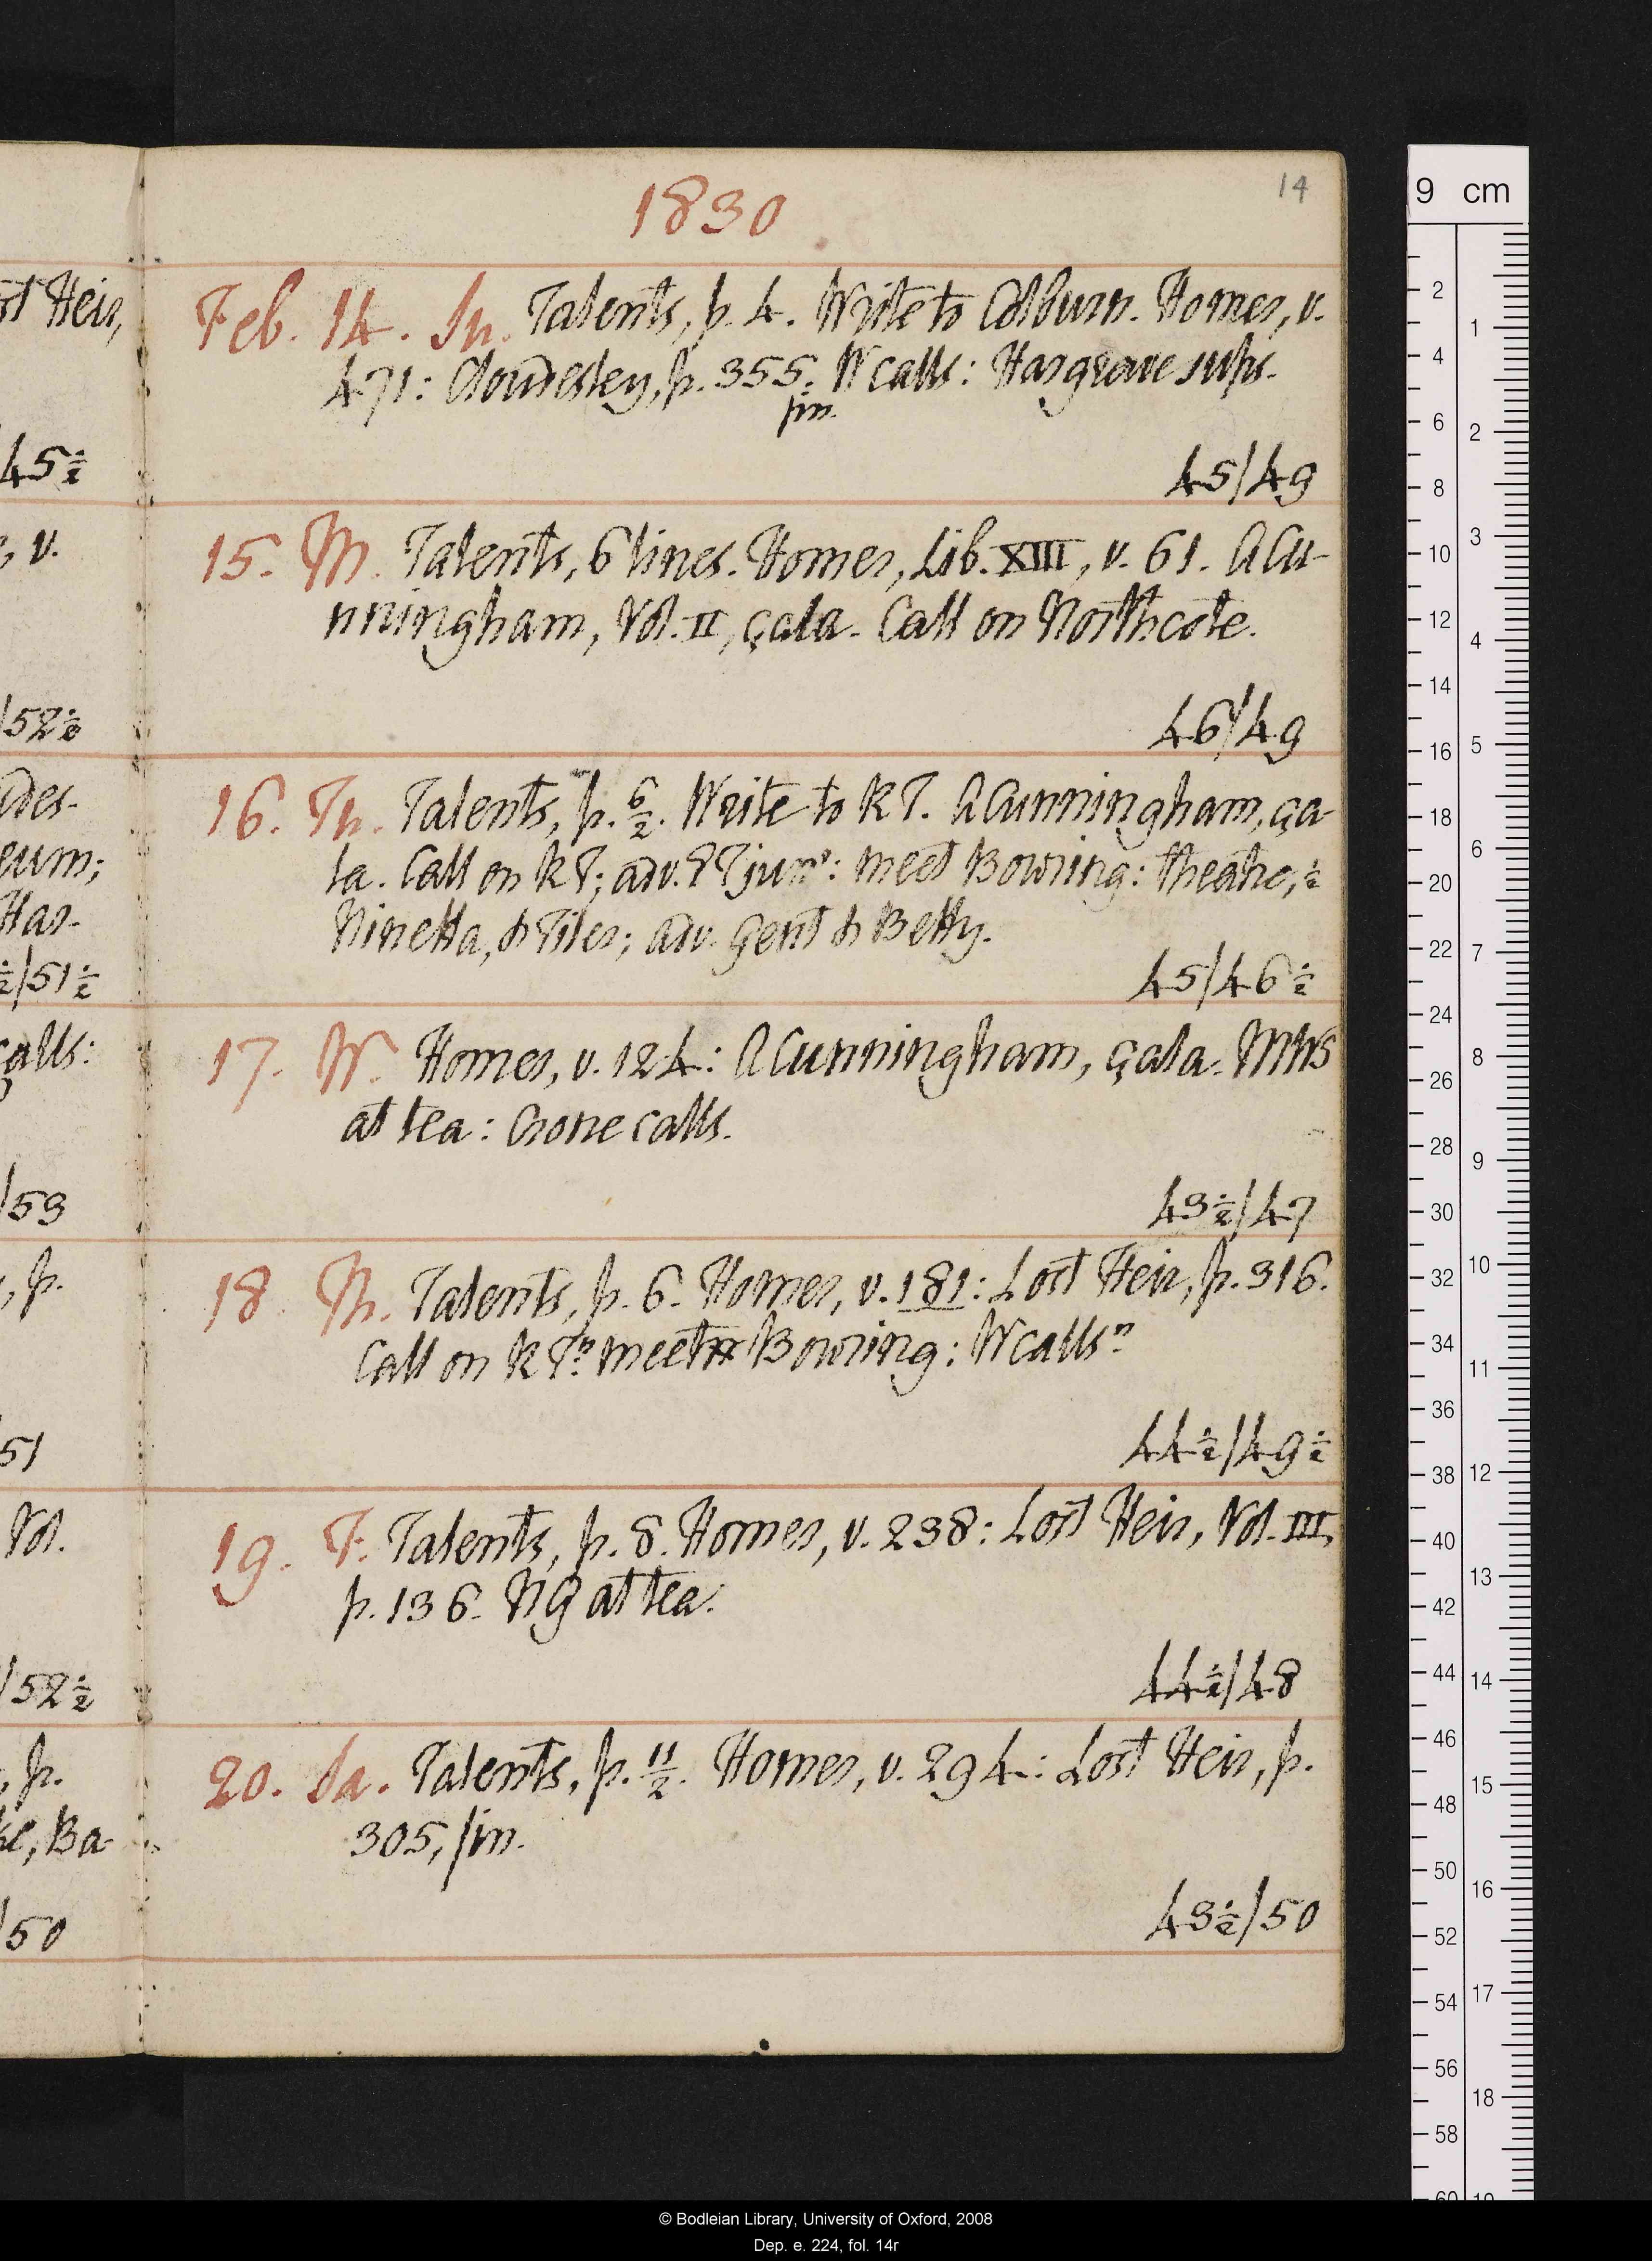 st Heir,
45½
, v.
/52½
des-
eum;
Har-
½/51½
calls:
/53
, p.
51
Vol.
/52½
, p.
, Ba-
/50
14
1830
Feb. 14. Su. Talents, p. 4. Write to Colburn. Homer, v.
471: Cloudesley, p. 355, W calls: Hargrave sups.
fin.
45/49
15. M. Talents, 6 lines. Homer, Lib. XIII, v. 61. A Cu-
nningham, Vol. II, çala. Call on Northcote.
46/49
16. Tu. Talents, p. 6/2. Write to R T. A Cunningham, ça-
la. Call on R T; adv. P T junr: meet Bowring: theatre, ½
Ninetta, & Tiler; adv. Gent & Betty.
45/46½
17. W. Homer, v. 124: A Cunningham, çala. MWS
at tea: Crone calls.
43½/47
18 Th. Talents, p. 6. Homer, v. 181: Lost Heir, p. 316.
Call on R T n: meet Bowring: W calls n.
44½/49½
19. F. Talents, p. 8. Homer, v. 238: Lost Heir, Vol. III,
p. 136. N G at tea.
44½/48
20. Sa. Talents, p. 11/2. Homer, v. 294: Lost Heir, p.
305, fin.
43½/50
9 cm
2
4
6
8
10
12
14
16
18
20
22
24
26
28
30
32
34
36
38
40
42
44
46
48
50
52
54
56
58
60
1
2
3
4
5
6
7
8
9
10
11
12
13
14
15
16
17
18
19
© Bodleian Library, University of Oxford, 2008
Dep. e. 224, fol. 14r